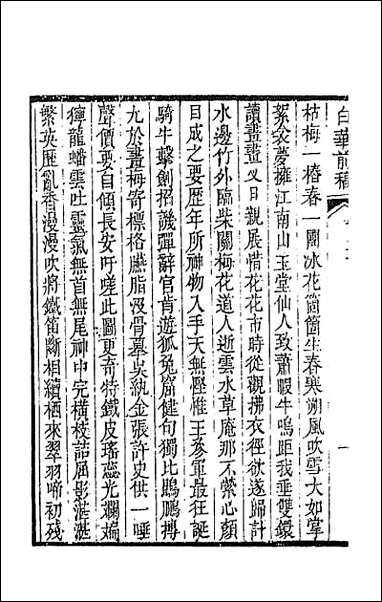 白華前稿
枯梅一樁春一園冰花箇箇生春寒朔風吹雪大如掌
絮衾夢擁江南山玉堂仙人致蕭暇牛鳴距我垂雙鐶
讀畫畫叉日觀展惜花花市時從觀拂衣徑欲遂歸計
水邊竹外隔柴關梅花道人逝雲水草庵那不縈心顏
目成之要歷年所神物入手天無慳惟王參軍最狂誕
騎牛擊劍招譏彈辭官肯遊狐兔窟健句獨比鵰鶚摶
尤於畫梅苛標格臙脂沒骨墓吳紈金張許史供一唾
聲價要自傾長安吁嗟此圖更奇特鐵皮瑤蕊光斕斒
獰龍蟠雲吐靈氣無首無尾神中完橫枝詰屈影漎漎
繁英歷亂香漫漫吹將鐵笛斷相續栖來翠羽啼初殘